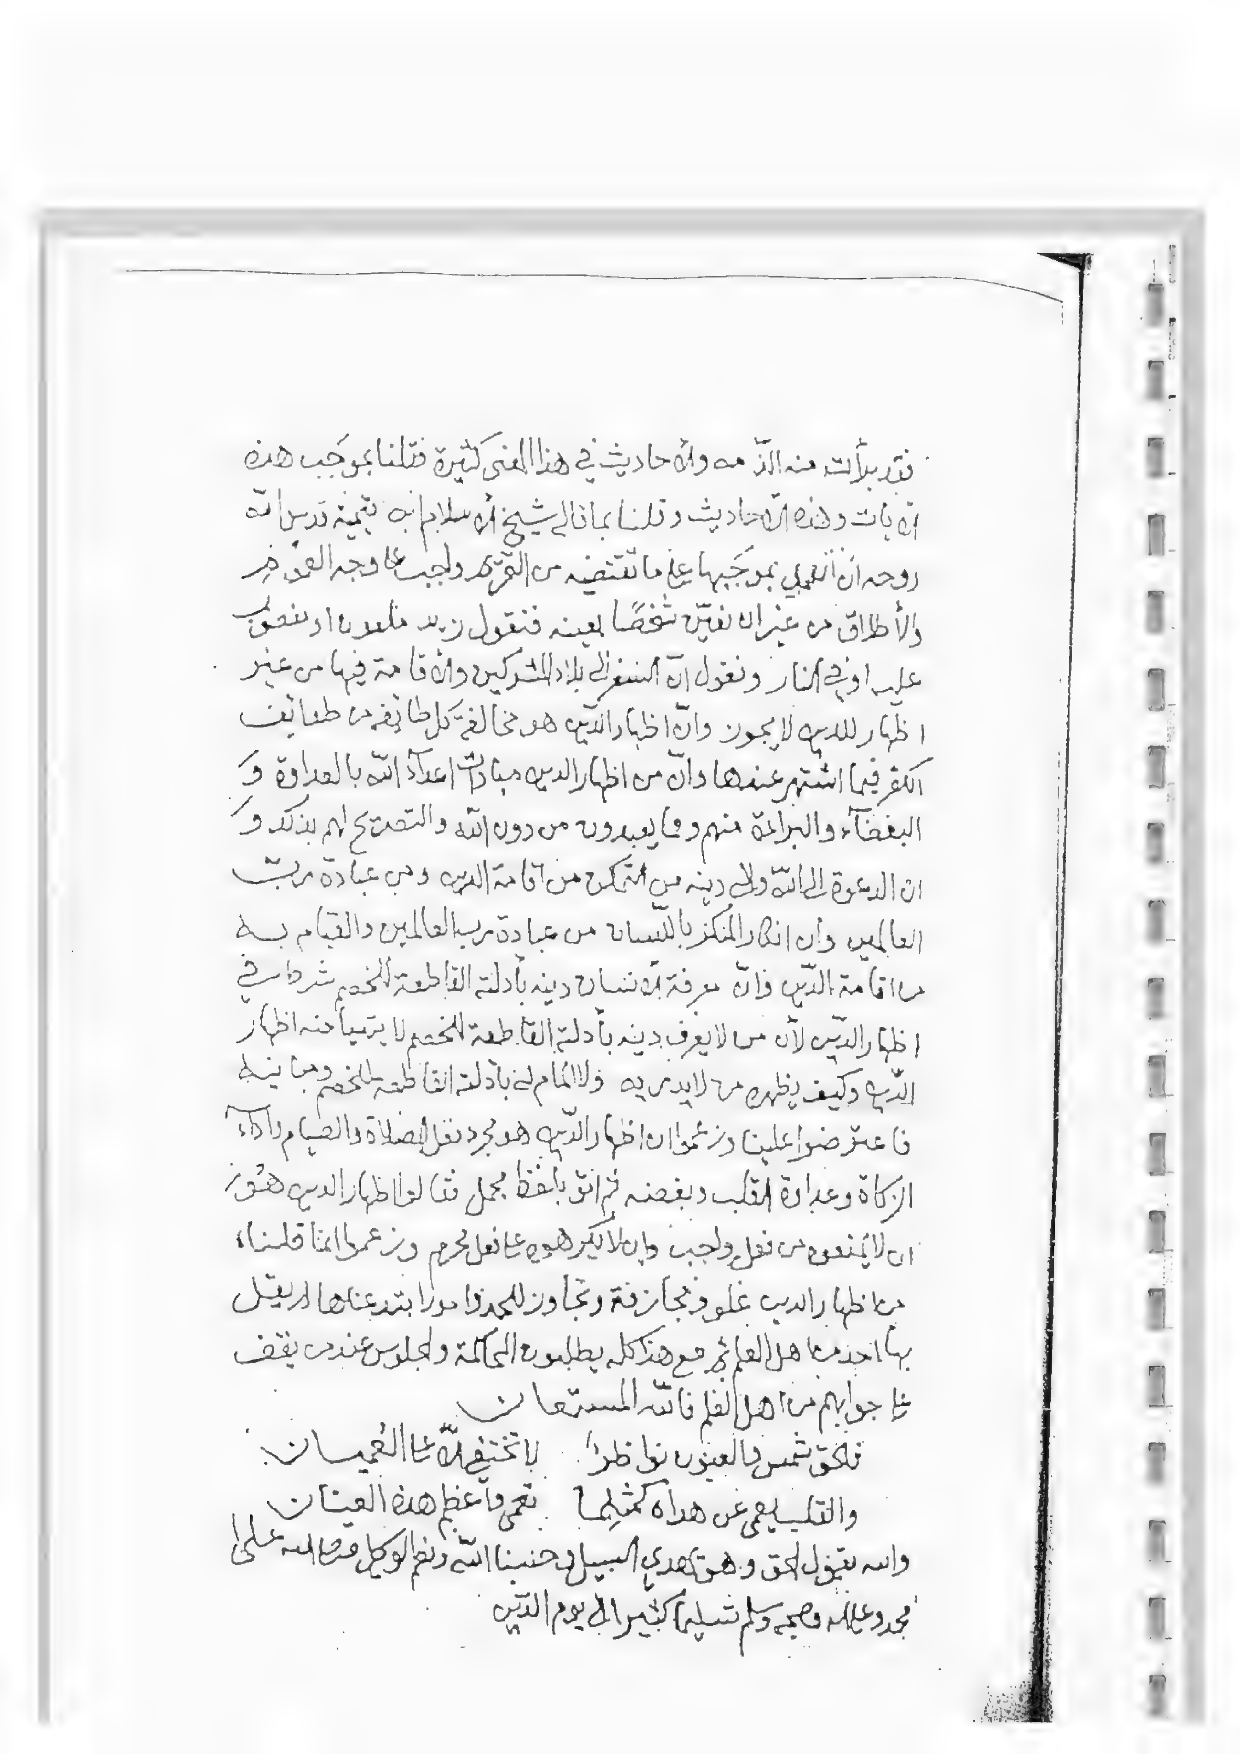 فقد برأت منه الذمه والأحاديث في هذا المعنى كثيرة فقلنا بموجَب هذه
الآيات وهذه الأحاديث وقلنا بما قال شيخ الأسلام ابن تيمية قدس الله
روحه أن العمل بموجَبها على ما تقتضيه من القرآن واجب على وجه العموم
والأطلاق من غير ان نعيّن شخصًا بعينه فنقول زيد ملعون او مغضوب
عليه او في النار ونقول انّ السفر الى بلاد المشركين والأقامة فيها من غير
اظهار للدين لا يجوز وانّ اظهار الدّين هو مخالفة كل طائفه من طوائف
الكفر فيما اشتهر عندها وانّ من اظهار الدين مباداة اعدآء الله بالعداوة و
البغضآء والبرائة منهم ومما يعبدون من دون الله والتصريح لهم بذلك و
ان الدعوة الى الله والى دينه من التمكن من اقامة الدين ومن عبادة ربّ
العالمين وأن انكار المنكر باللّسان من عبادة رب العالمين والقيام به
من اقامة الدّين وانّ معرفة الأنسان دينه بأدلته القاطعة للخصم شرط في
اظهار الدّين لأن من لا يعرف دينه بأدلته القاطعة للخصم لا يتهيأ منه اظهار
الدّين وكيف يظهره من لا يدريه ولا المام له بأدلته القاطعة للخصم ومباينيه
فاعترضوا علينا وزعموا ان اظهار الدّين هو مجرد فعل الصلاة والصيام وادآء
الزكاة وعداوة القلب وبغضه ثم اتوا بلفظ مجمل فقالوا اظهار الدين هو
ان لا يمنعون من فعل واجب وان لا يكرهون على فعل محرم وزعموا انما قلناه
من اظهار الدين غلو ومجازفة وتجاوز للحد وامورا ابتدعناها لم يقل
بها احد من اهل العلم ثم مع هذا كله يطلبون المحاكمة والجلوس عند من يقف
على جوابهم من اهل العلم فالله المستعان
فالحق شمس والعيون نواظرٌ لا تختفي الّا على العُميان
والقلب يعمى عن هداه كمثلما تعمى وأعظم هذه العينان
والله يقول الحق وهو يهدي السبيل وحسبنا الله ونعم الوكيل وصلى الله على
محمد وعلى اله وصحبه وسلم تسليما كثيرا الى يوم الدّين